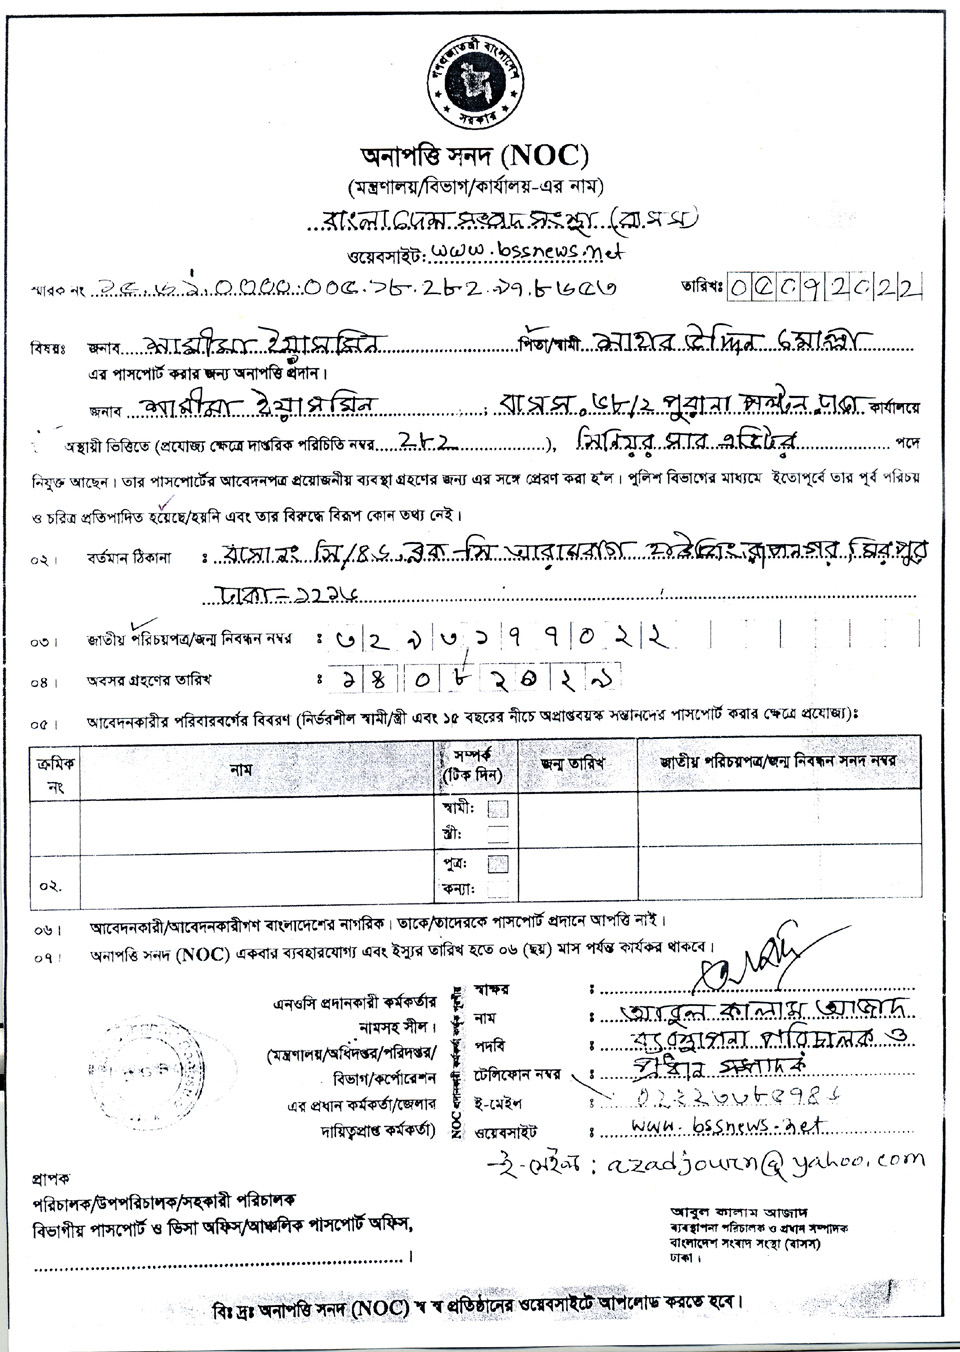 গণপ্রজাতন্ত্রী বাংলাদেশ
সরকার
অনাপত্তি সনদ (NOC)
(মন্ত্রণালয়/বিভাগ/কার্যালয়-এর নাম)
বাংলাদেশ সংবাদ সংস্থা (বাসস)
ওয়েবসাইট: www.bssnews.net
স্মারক নং
তারিখঃ ০৫০৭২০২২
বিষয়ঃ জনাব শামীমা ইয়াসমিন পিতা/স্বামী মোল্লা
এর পাসপোর্ট করার জন্য অনাপত্তি প্রদান।
জনাব শামীমা ইয়াসমিন ; বাসস, ৬৮/২ পুরানা পল্টন, ঢাকা কার্যালয়ে
অস্থায়ী ভিত্তিতে (প্রযোজ্য ক্ষেত্রে দাপ্তরিক পরিচিতি নম্বর ২৮২ ), সিনিয়র সাব এডিটর পদে
নিযুক্ত আছেন। তার পাসপোর্টের আবেদনপত্র প্রয়োজনীয় ব্যবস্থা গ্রহণের জন্য এর সঙ্গে প্রেরণ করা হ'ল। পুলিশ বিভাগের মাধ্যমে ইতোপূর্বে তার পূর্ব পরিচয়
ও চরিত্র প্রতিপাদিত হয়েছে/হয়নি এবং তার বিরুদ্ধে বিরূপ কোন তথ্য নেই।
০২। বর্তমান ঠিকানা : বাসা নং সি/৪৬, ব্লক-সি আরামবাগ হাউজিং রূপনগর, মিরপুর
ঢাকা-১২১৬
০৩। জাতীয় পরিচয়পত্র/জন্ম নিবন্ধন নম্বর : ৩২৯৩১৭৭০২২
০৪। অবসর গ্রহণের তারিখ : ১৪০৮২০২৯
০৫। আবেদনকারীর পরিবারবর্গের বিবরণ (নির্ভরশীল স্বামী/স্ত্রী এবং ১৫ বছরের নীচে অপ্রাপ্তবয়স্ক সন্তানদের পাসপোর্ট করার ক্ষেত্রে প্রযোজ্য)ঃ
ক্রমিক নং
নাম
সম্পর্ক (টিক দিন)
জন্ম তারিখ
জাতীয় পরিচয়পত্র/জন্ম নিবন্ধন সনদ নম্বর
স্বামী:
স্ত্রী:
০২.
পুত্র:
কন্যা:
০৬। আবেদনকারী/আবেদনকারীগণ বাংলাদেশের নাগরিক। তাকে/তাদেরকে পাসপোর্ট প্রদানে আপত্তি নাই।
০৭। অনাপত্তি সনদ (NOC) একবার ব্যবহারযোগ্য এবং ইস্যুর তারিখ হতে ০৬ (ছয়) মাস পর্যন্ত কার্যকর থাকবে।
এনওসি প্রদানকারী কর্মকর্তার
নামসহ সীল।
(মন্ত্রণালয়/অধিদপ্তর/পরিদপ্তর/
বিভাগ/কর্পোরেশন
এর প্রধান কর্মকর্তা/জেলার
দায়িত্বপ্রাপ্ত কর্মকর্তা)
স্বাক্ষর :
নাম : আবুল কালাম আজাদ
পদবি : ব্যবস্থাপনা পরিচালক ও
প্রধান সম্পাদক
টেলিফোন নম্বর
ই-মেইল :
ওয়েবসাইট : www.bssnews.net
ই-মেইল : azadjourn@yahoo.com
প্রাপক
পরিচালক/উপপরিচালক/সহকারী পরিচালক
বিভাগীয় পাসপোর্ট ও ভিসা অফিস/আঞ্চলিক পাসপোর্ট অফিস,
।
আবুল কালাম আজাদ
ব্যবস্থাপনা পরিচালক ও প্রধান সম্পাদক
বাংলাদেশ সংবাদ সংস্থা (বাসস)
ঢাকা।
বিঃ দ্রঃ অনাপত্তি সনদ (NOC) স্ব স্ব প্রতিষ্ঠানের ওয়েবসাইটে আপলোড করতে হবে।